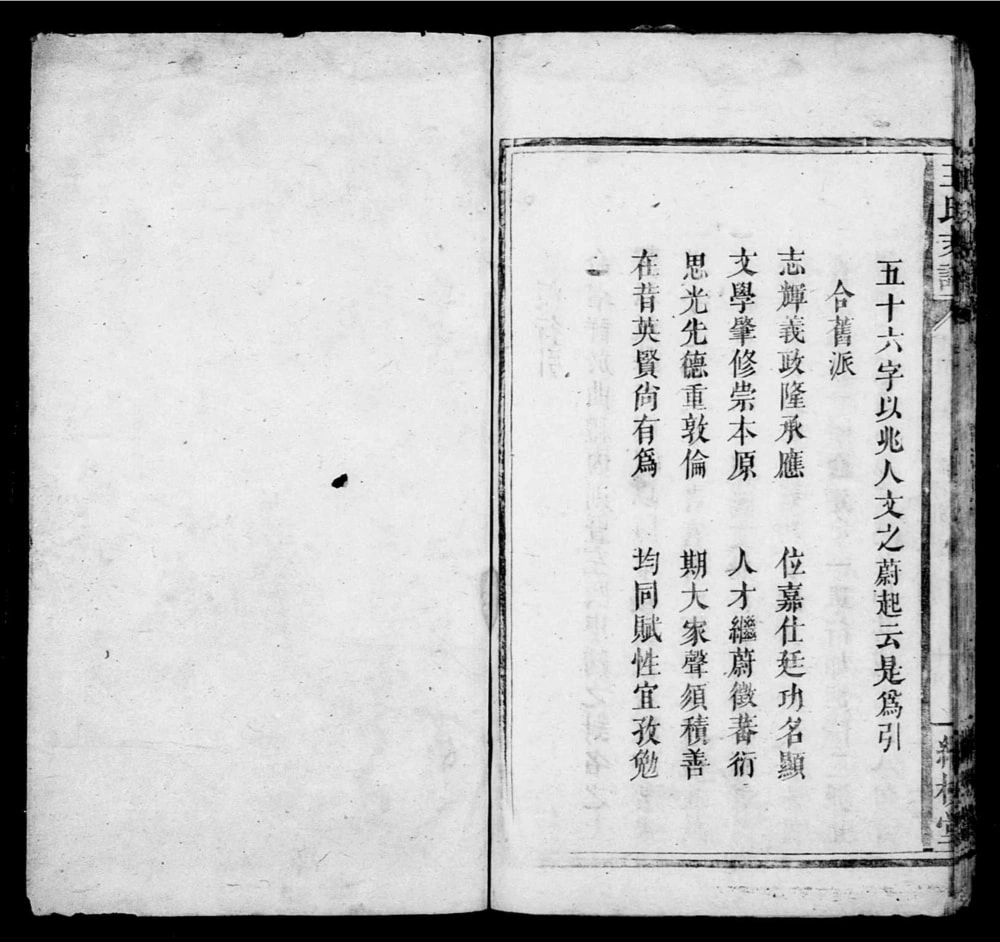 王氏家譜
五十六字以兆人文之蔚起云是爲引
合舊派
志輝義政隆承應　位嘉仕廷功名顯
文學肇修崇本原　人才繼蔚徵蕃衍
思光先德重敦倫　期大家聲須積善
在昔英賢尙有爲　均同賦性宜孜勉